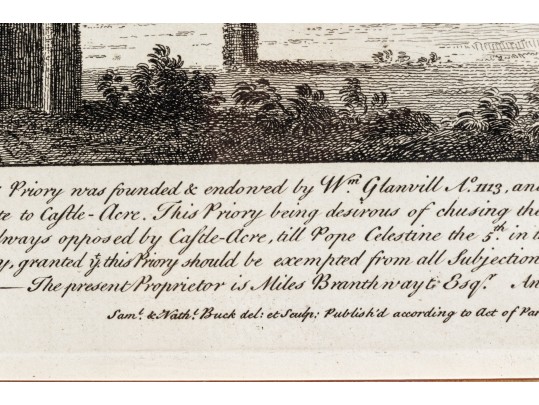 Priory was founded & endowed by Wᵐ Glanvill Aº. 1113, and
te to Caſtle-Acre. This Priory being desirous of chusing the
lways opposed by Caſtle-Acre, till Pope Celestine the 5.ᵗʰ in t
y, granted yᵗ this Priory should be exempted from all Subjection
— The present Proprietor is Miles Branthwayt Esqʳ An
Samˡ. & Nathˡ. Buck del: et Sculp: Publish'd according to Act of Par